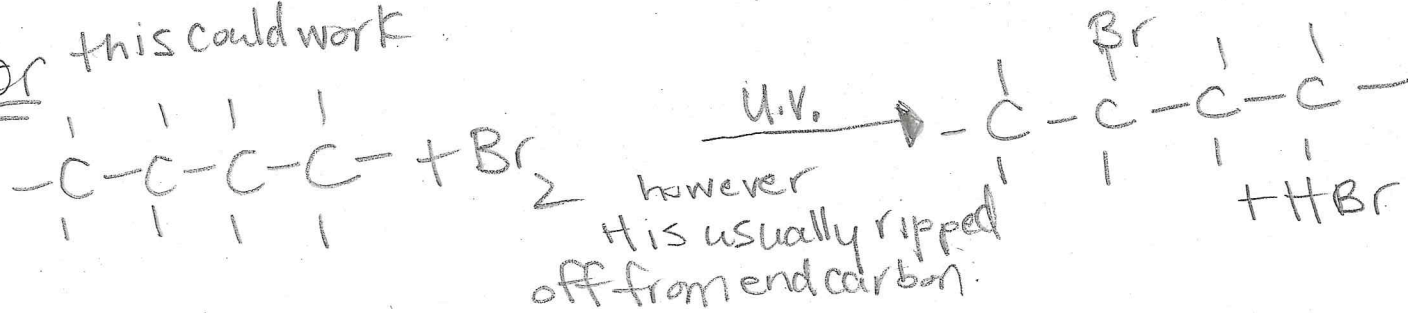 or this could work.
Br
-C-C-C-C- + Br2 U.V. -C-C-C-C-
however + HBr
H is usually ripped
off from end carbon.